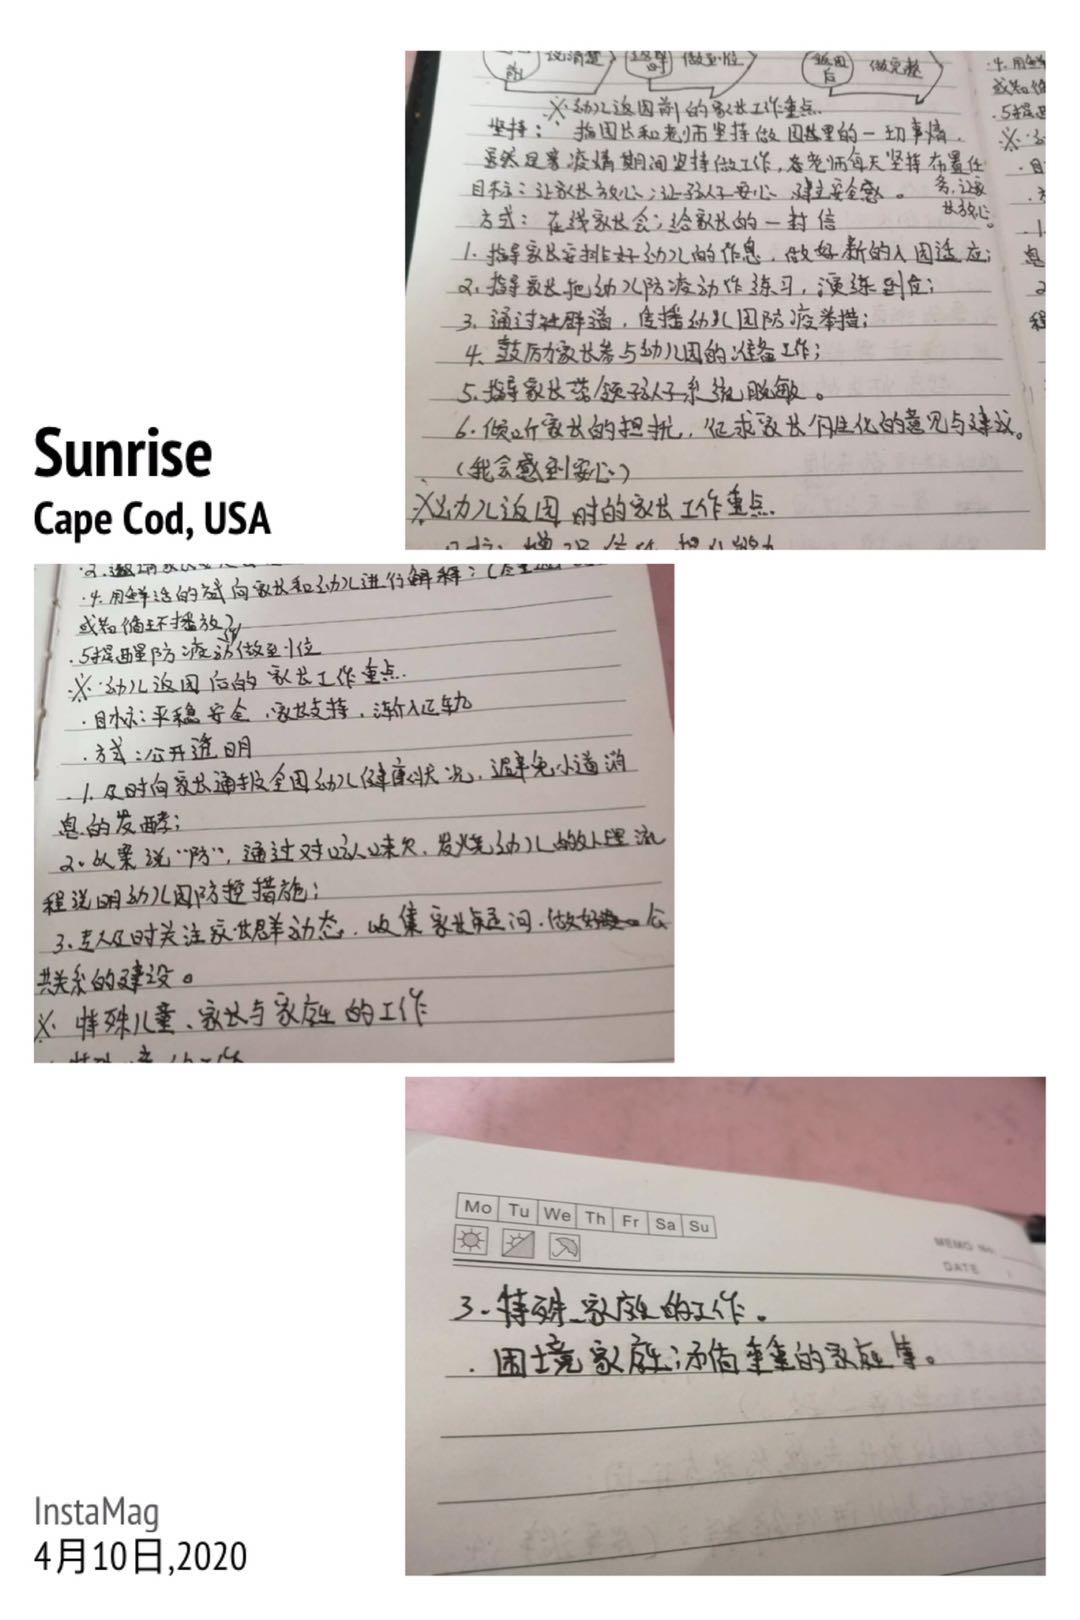 前 说清楚 返园时 做到位 返园后 做完整
※幼儿返园前的家长工作重点.
坚持： 指园长和老师坚持做园里的一切事情.
虽然是寒疫情期间坚持做工作，各老师每天坚持布置任
务，让家
长放心。
目标：让家长放心；让孩子安心 建立安全感。
方式：在线家长会；给家长的一封信
1.指导家长安排好幼儿的作息，做好新的入园适应；
2.指导家长把幼儿防疫动作练习，演练到位；
3.通过社群道，传播幼儿园防疫举措；
4.鼓励家长参与幼儿园的准备工作；
5.指导家长带领孩子系统脱敏。
6.倾听家长的担扰，征求家长个性化的意见与建议。
（我会感到安心）
※幼儿返园时的家长工作重点.
Sunrise
Cape Cod, USA
·4.用鲜活的方式向家长和幼儿进行解释：
或者循环播放）
·5提醒防疫动做到位
※·幼儿返园后的家长工作重点.
·目标：平稳安全，家长支持，渐入正轨
·方式：公开透明
·1.及时向家长通报全园幼儿健康状况，避免小道消
息的发酵；
2.以案说“防”，通过对咳嗽、发烧幼儿的处理流
程说明幼儿园防控措施；
3.专人及时关注家长群动态，收集家长疑问.做好公
共关系的建设。
※ 特殊儿童、家长与家庭的工作
Mo Tu We Th Fr Sa Su
MEMO No.
DATE
3.特殊家庭的工作。
·困境家庭；矛盾重重的家庭等。
InstaMag
4月10日,2020